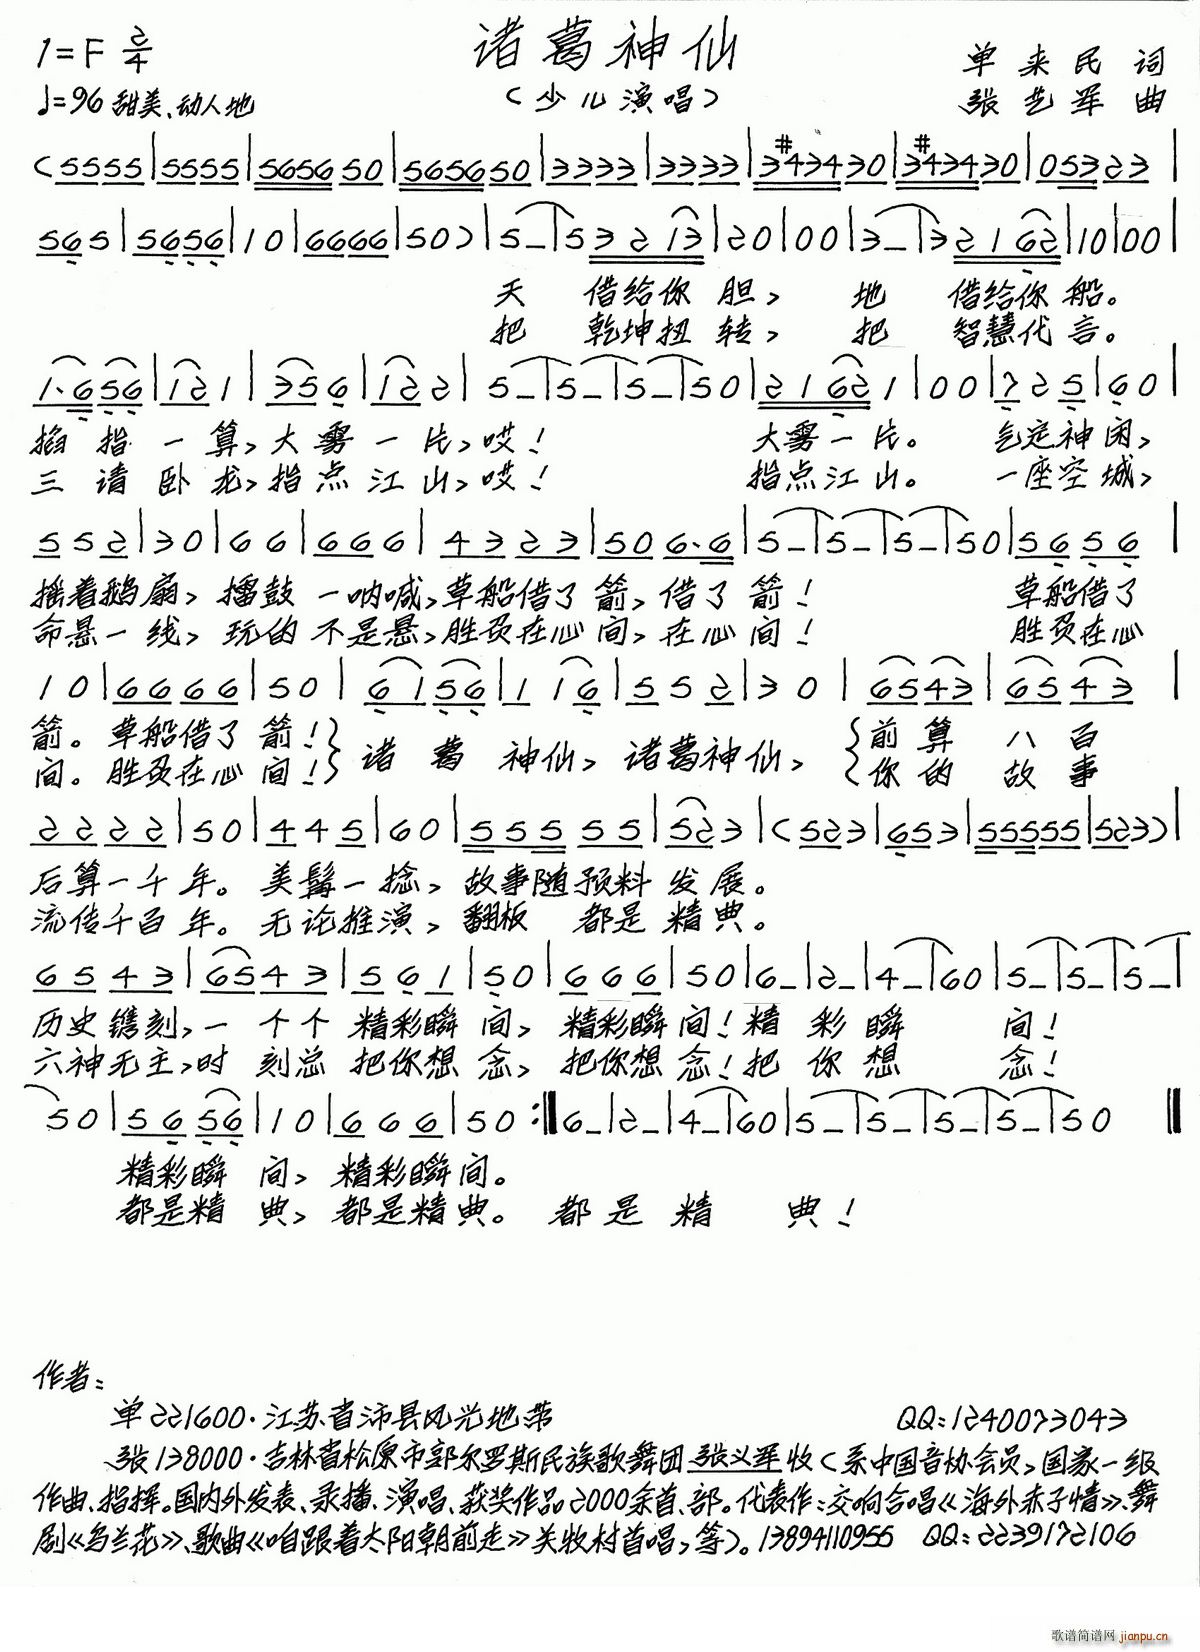 诸葛神仙
1=F 2/4
单来民 词
(少儿演唱)
♩=96 甜美、动人地
张艺军 曲
(5555|5555|565650|565650|3333|3333|3#43430|3#43430|05323|
565|5656|10|6666|50)|5_|53213|20|00|3_|32162|10|00|
天 借给你胆, 地 借给你船。
把 乾坤扭转, 把 智慧代言。
1·656|121|356|122|5_|5_|5_|50|21621|00|725|60|
掐指一算,大雾一片,哎! 大雾一片。 乞定神闲,
三请卧龙,指点江山,哎! 指点江山。 一座空城,
552|30|66|666|4323|506·6|5_|5_|5_|50|5656|
摇着鹅扇, 擂鼓一呐喊,草船借了箭,借了箭! 草船借了
命悬一线, 玩的不是悬,胜负在心间,在心间! 胜负在心
10|6666|50|6156|116|552|30|6543|6543|
箭。草船借了箭!}诸葛神仙,诸葛神仙,{前算八百
间。胜负在心间!} {你的故事
2222|50|445|60|55555|523|(523|653|55555|523)|
后算一千年。美髯一捻,故事随预料发展。
流传千百年。无论推演,翻板 都是精典。
6543|6543|561|50|666|50|6_|2_|4_|60|5_|5_|5_|
历史镌刻,一个个精彩瞬间,精彩瞬间!精彩瞬间!
六神无主,时刻总把你想念,把你想念!把你想念!
50|5656|10|666|50:‖6_|2_|4_|60|5_|5_|5_|5_|50‖
精彩瞬间,精彩瞬间。
都是精典,都是精典。都是精典!
作者:
单221600·江苏省沛县风光地带 QQ:1240073043
张138000·吉林省松原市郭尔罗斯民族歌舞团 张义军收(系中国音协会员,国家一级
作曲、指挥。国内外发表、录播、演唱、获奖作品2000余首、部。代表作:交响合唱《海外赤子情》、舞
剧《乌兰花》、歌曲《咱跟着太阳朝前走》关牧村首唱,等)。13894110955 QQ:2239172106
歌谱简谱网
jianpu.cn